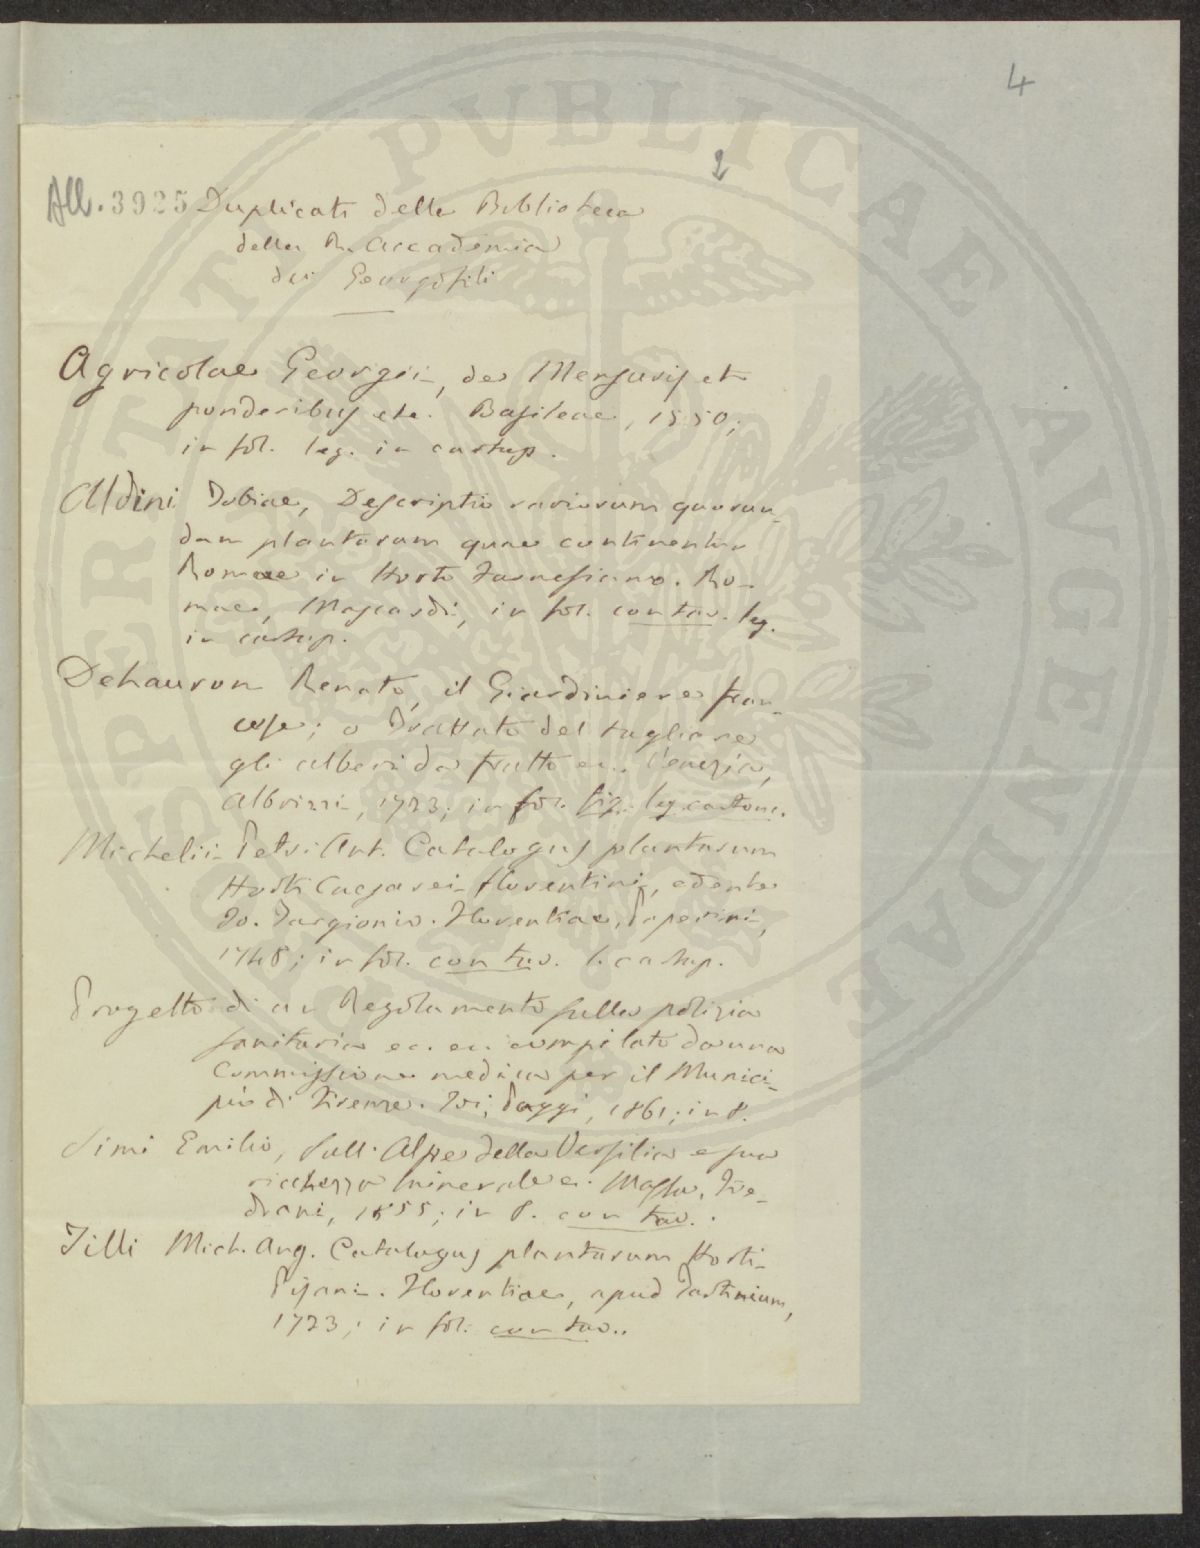 4
2
All. 3925 Duplicati della Biblioteca
della R. Accademia
dei Georgofili
Agricolae Georgii, de Mensuris et
ponderibus etc. Basileae, 1550;
in fol. leg. in cartap.
Aldini Tobiae, Descriptio rariorum quorun-
dam plantarum quae continentur
Romae in Horto Farnesiano. Ro-
mae, Mascardi, in fol. con tav. leg.
in cartap.
Dehauron Renato, il Giardiniere fran-
cese; o Trattato del tagliare
gli alberi da frutto ec. Venezia,
Albrizzi, 1723; in fol. fig. leg. cartone.
Michelii Petri Ant. Catalogus plantarum
Horti Caesarei florentini, edente
Jo. Targionio. Florentiae, Paperini,
1748; in fol. con tav. l. cartap.
Progetto di un Regolamento sulla polizia
sanitaria ec. ec. compilato da una
Commissione medica per il Munici-
pio di Firenze. Ivi, Paggi, 1861; in 8.
Simi Emilio, sull'Alpe della Versilia e sua
ricchezza minerale ec. Massa, Fre-
diani, 1855; in 8. con tav.
Tilli Mich. Ang. Catalogus plantarum Horti
Pisani. Florentiae, apud Tartinium,
1723; in fol. con tav.
PROSPERITATI PVBLICAE AVGENDAE